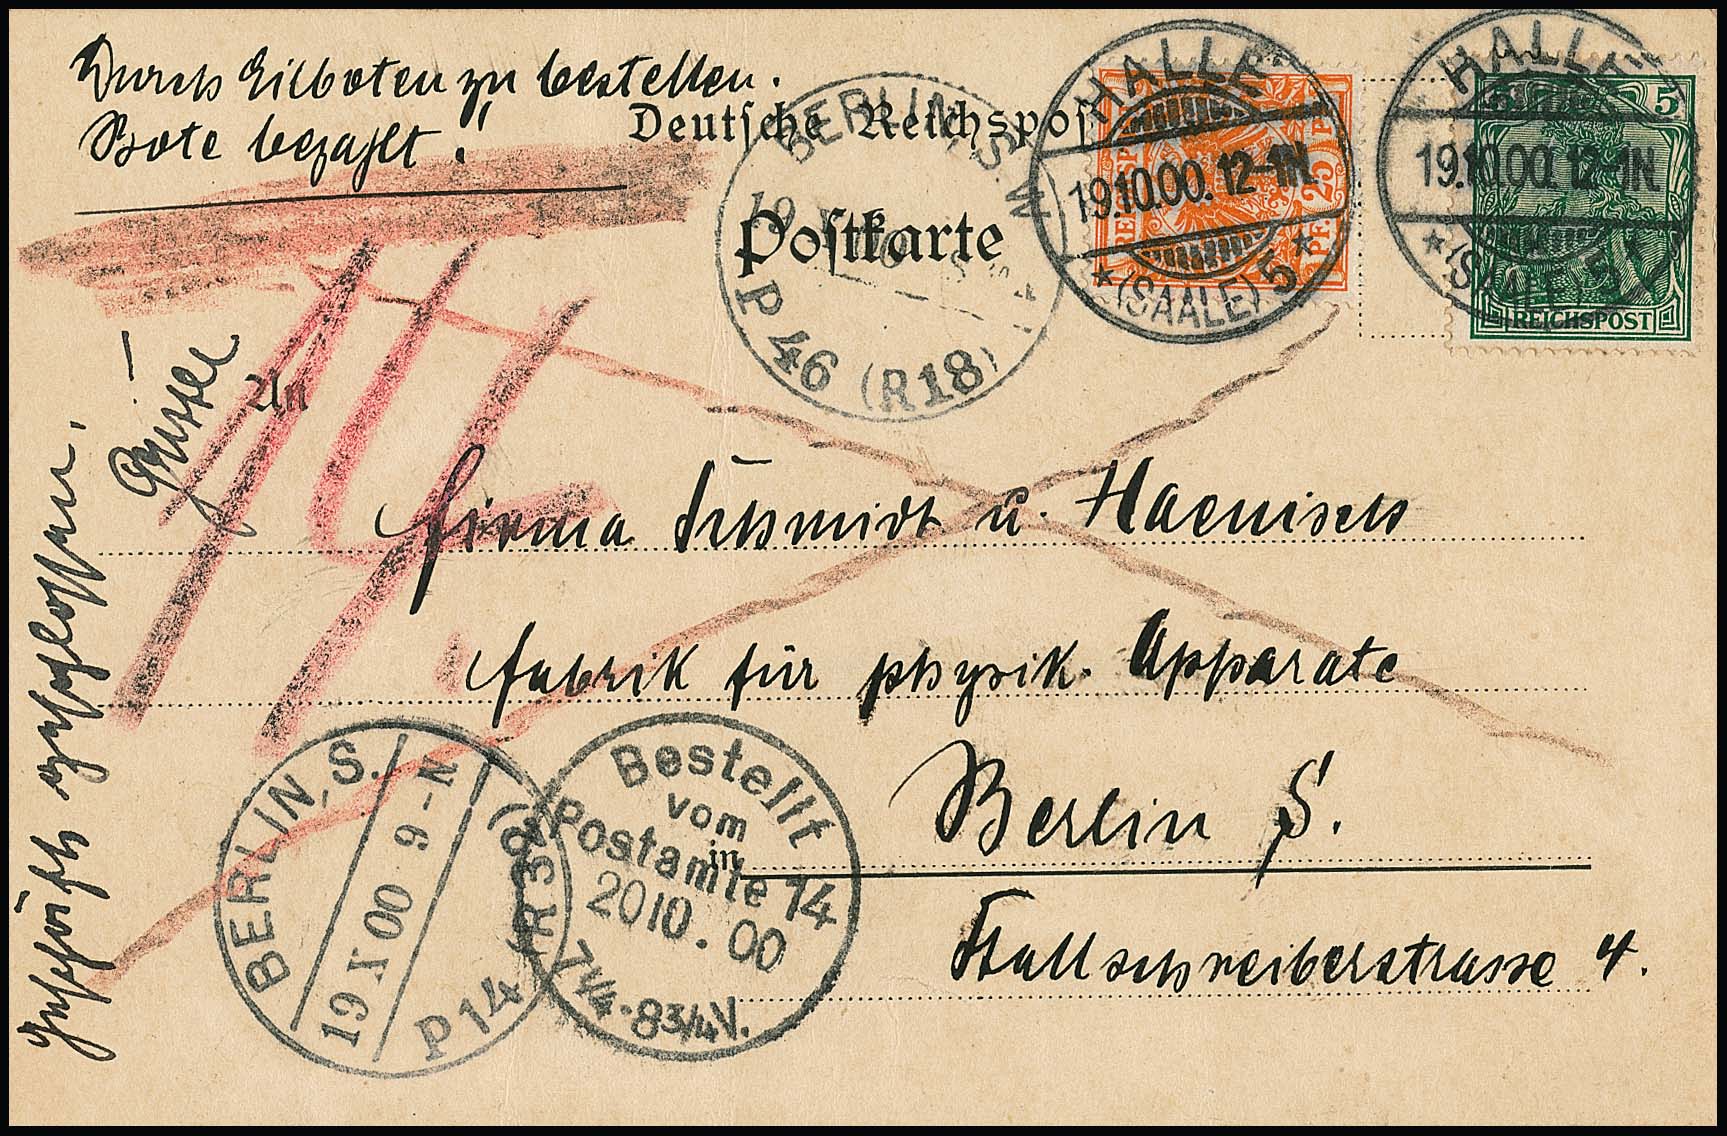 Durch Eilboten zu bestellen.
Bote bezahlt!
Deutsche Reichspost
Postkarte
BERLIN, S.W.
19 X
P 46 (R18)
HALLE
19.10.00. 12-1N
* (SAALE) 5 *
REICHSPOST
25 PF
HALLE
19.10.00. 12-1N
* (SAALE) 5 *
5
REICHSPOST
An
Firma Schmidt u. Haensch
Fabrik für physik. Apparate
in
Berlin S.
Stallschreiberstrasse 4.
BERLIN, S.
19 X 00 9-N
P14 (R32)
Bestellt
vom
Postamte 14
2010.00
7¼-8¾V.
Geschäft geschlossen.